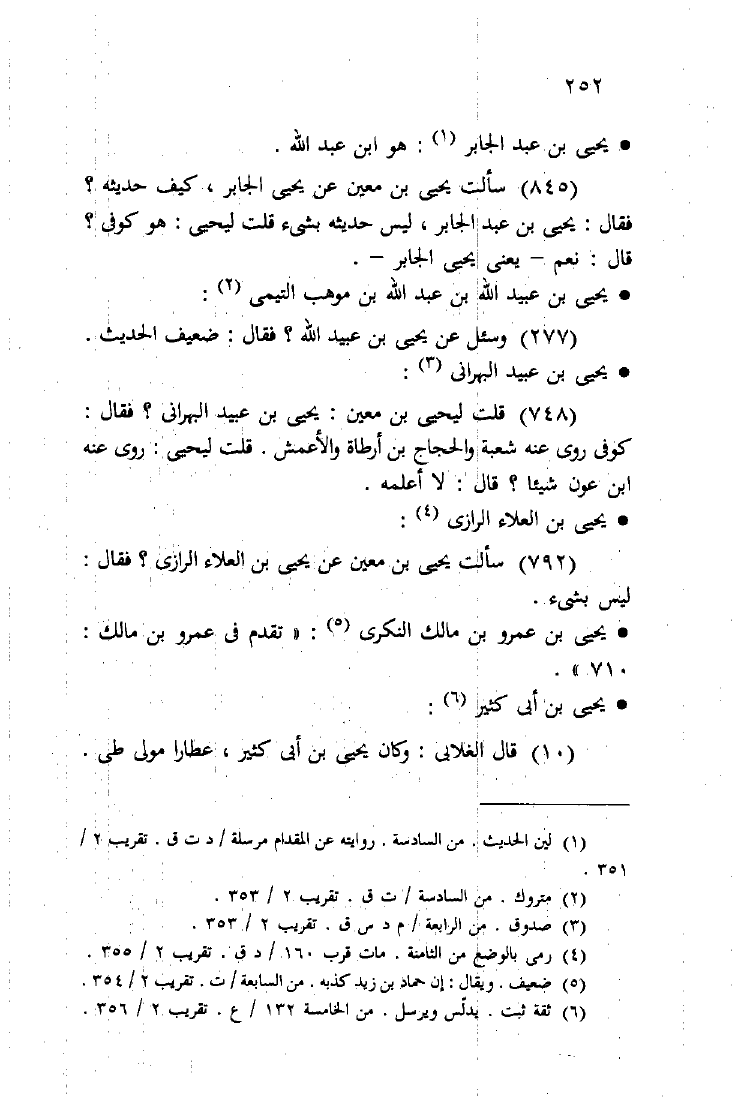 ٢٥٢
● يحيى بن عبد الجابر (١) : هو ابن عبد الله .
(٨٤٥) سألت يحيى بن معين عن يحيى الجابر ، كيف حديثه ؟
فقال : يحيى بن عبد الجابر ، ليس حديثه بشىء قلت ليحيى : هو كوفى ؟
قال : نعم – يعنى يحيى الجابر – .
● يحيى بن عبيد الله بن عبد الله بن موهب التيمى (٢) :
(٢٧٧) وسئل عن يحيى بن عبيد الله ؟ فقال : ضعيف الحديث .
● يحيى بن عبيد البهرانى (٣) :
(٧٤٨) قلت ليحيى بن معين : يحيى بن عبيد البهرانى ؟ فقال :
كوفى روى عنه شعبة والحجاج بن أرطاة والأعمش . قلت ليحيى : روى عنه
ابن عون شيئا ؟ قال : لا أعلمه .
● يحيى بن العلاء الرازى (٤) :
(٧٩٢) سألت يحيى بن معين عن يحيى بن العلاء الرازى ؟ فقال :
ليس بشىء .
● يحيى بن عمرو بن مالك النكرى (٥) : « تقدم فى عمرو بن مالك :
٧١٠ » .
● يحيى بن أبى كثير (٦) :
(١٠) قال الغلابى : وكان يحيى بن أبى كثير ، عطارا مولى طى .
(١) لين الحديث . من السادسة . روايته عن المقدام مرسلة / د ت ق . تقريب ٢ /
٣٥١ .
(٢) متروك . من السادسة / ت ق . تقريب ٢ / ٣٥٣ .
(٣) صدوق . من الرابعة / م د س ق . تقريب ٢ / ٣٥٣ .
(٤) رمى بالوضع من الثامنة . مات قرب ١٦٠ / د ق . تقريب ٢ / ٣٥٥ .
(٥) ضعيف . ويقال : إن حماد بن زيد كذبه . من السابعة / ت . تقريب ٢ / ٣٥٤ .
(٦) ثقة ثبت . يدلّس ويرسل . من الخامسة ١٣٢ / ع . تقريب ٢ / ٣٥٦ .